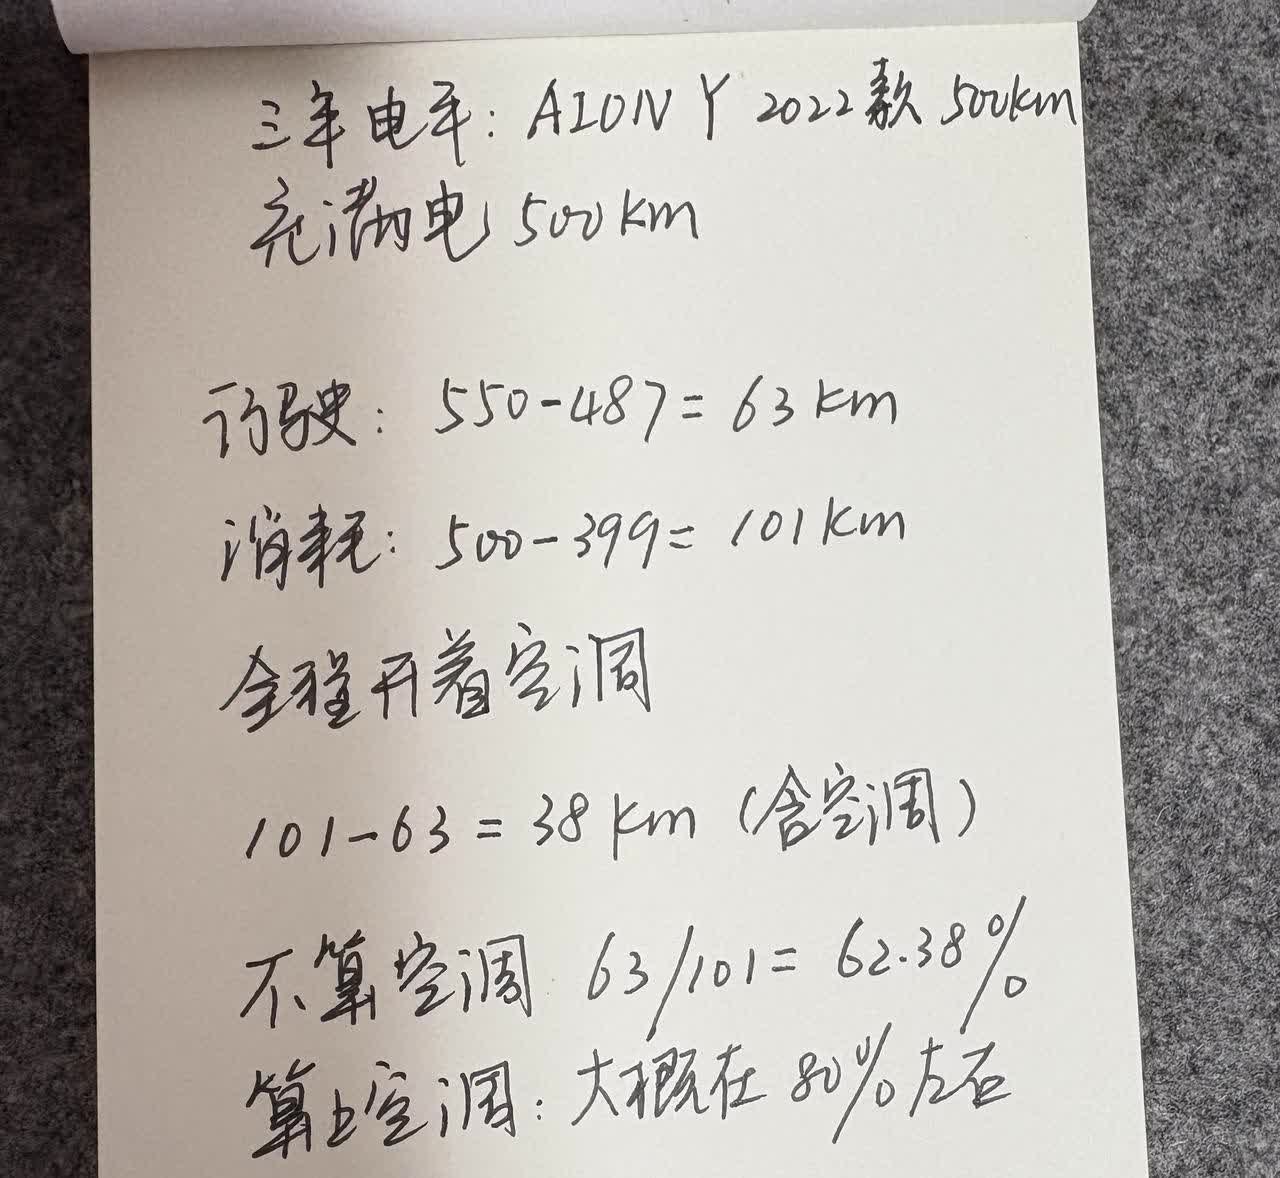 三年电车: AION Y 2022款 500km
充满电 500km
行驶: 550-487=63km
消耗: 500-399=101km
全程开着空调
101-63=38km (含空调)
不算空调 63/101=62.38%
算上空调: 大概在 80% 左右